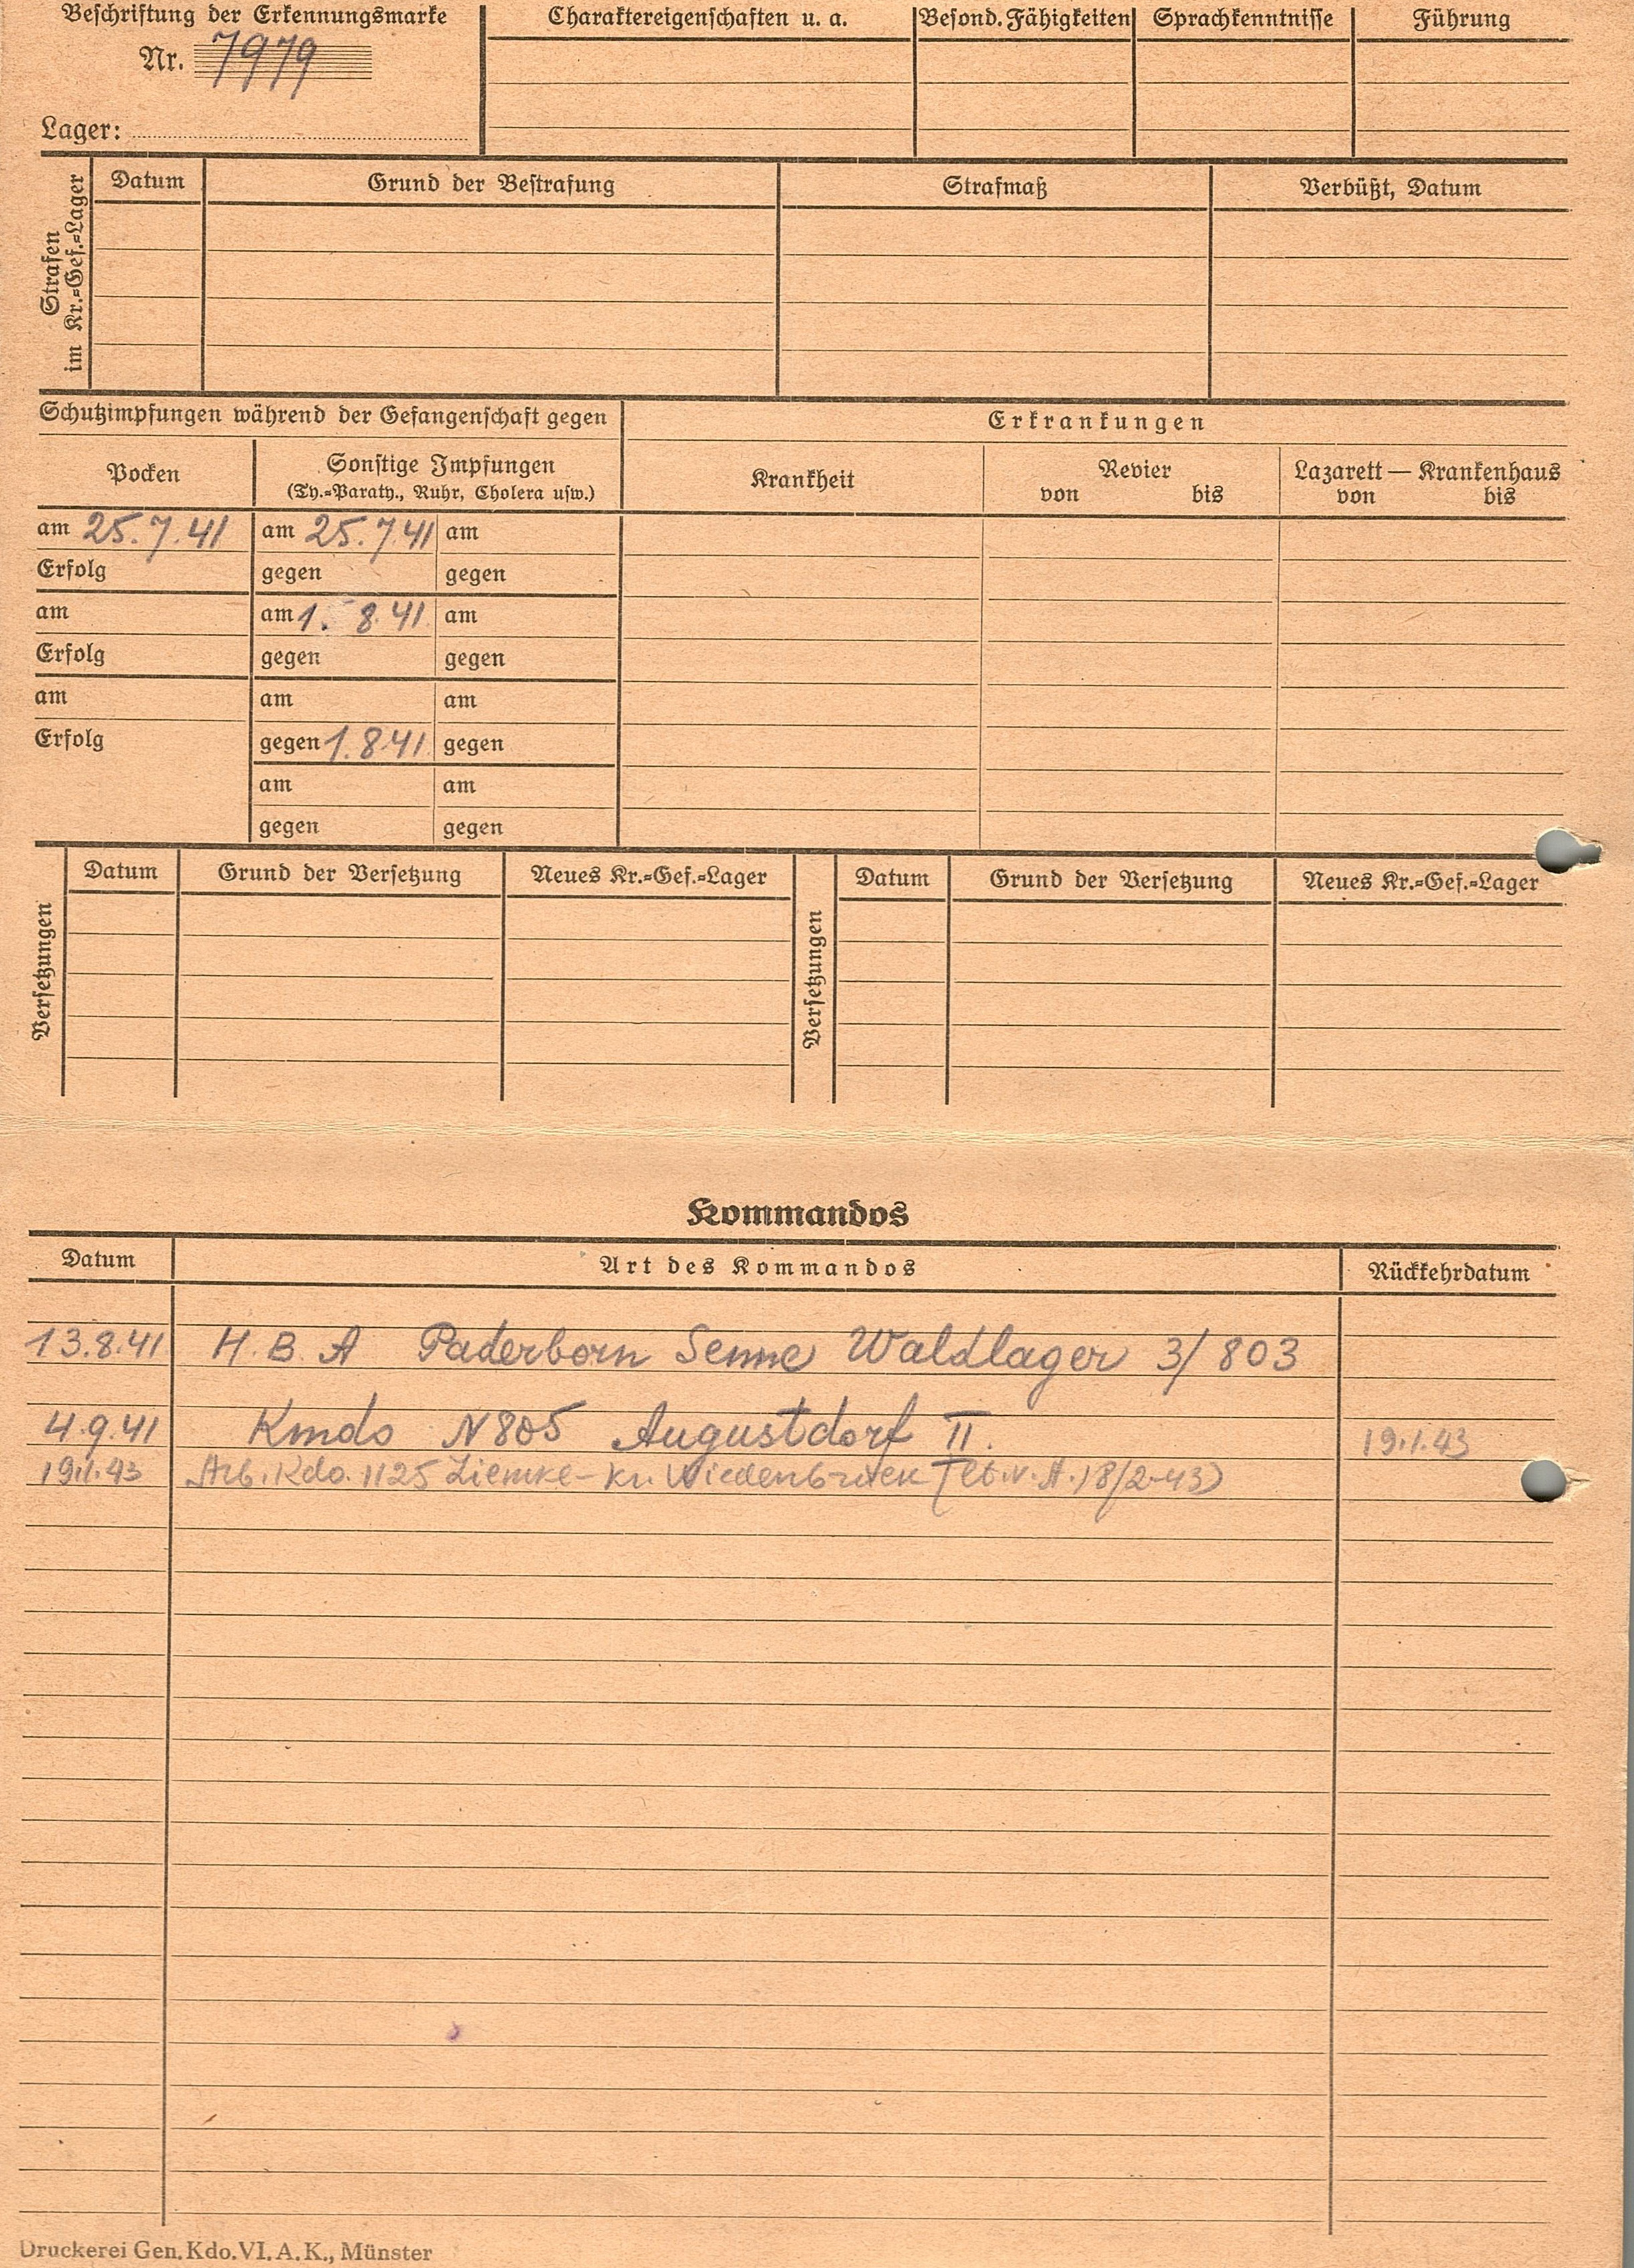 Beschriftung der Erkennungsmarke
Nr. 7979
Lager:
Charaktereigenschaften u. a.
Besond. Fähigkeiten
Sprachkenntnisse
Führung
Strafen
im Kr.=Gef.=Lager
Datum
Grund der Bestrafung
Strafmaß
Verbüßt, Datum
Schutzimpfungen während der Gefangenschaft gegen
Erkrankungen
Pocken
Sonstige Impfungen
(Ty.=Paraty., Ruhr, Cholera usw.)
Krankheit
Revier
von bis
Lazarett — Krankenhaus
von bis
am 25.7.41 am 25.7.41 am
Erfolg gegen gegen
am am 1. 8.41 am
Erfolg gegen gegen
am am am
Erfolg gegen 1.8.41 gegen
am am
gegen gegen
Versetzungen
Datum Grund der Versetzung Neues Kr.=Gef.=Lager
Versetzungen
Datum Grund der Versetzung Neues Kr.=Gef.=Lager
Kommandos
Datum Art des Kommandos Rückkehrdatum
13.8.41 H. B. A Paderborn Senne Waldlager 3/803
4.9.41 Kmdo N 805 Augustdorf II. 19.1.43
19.1.43 Arb. Kdo. 1125 Liemke - Kr. Wiedenbrück 8/2-43)
Druckerei Gen. Kdo. VI. A. K., Münster